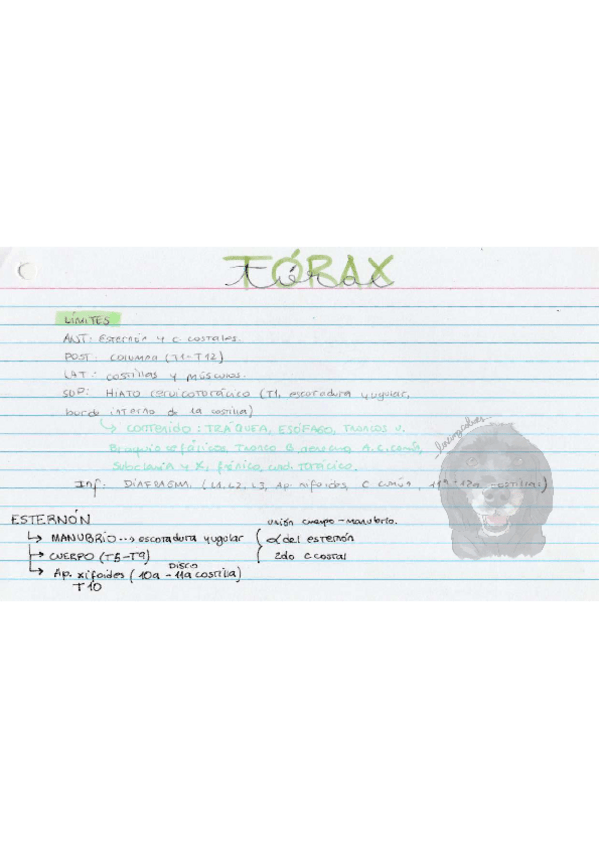 TÓRAX
Tórax
LÍMITES
ANT: Esternón y c. costales.
POST: COLUMNA (T1-T12)
LAT: costillas y músculos.
SUP: HIATO cervicotorácico (T1, escotadura yugular,
borde interno de la costilla)
↳ CONTENIDO: TRÁQUEA, ESÓFAGO, TRONCOS V.
Braquiocefálicos, Tronco B, A. C. común,
Subclavia y X, frénico, cond. torácico.
Inf: DIAFRAGMA (L1, L2, L3, Ap. xifoides, C común, 11a-12a costillas)
ESTERNÓN
↳ MANUBRIO → escotadura yugular
↳ CUERPO (T5-T9)
↳ Ap. xifoides (10a - DISCO 11a costilla)
T10
unión cuerpo-manubrio.
α del esternón
2do c costal